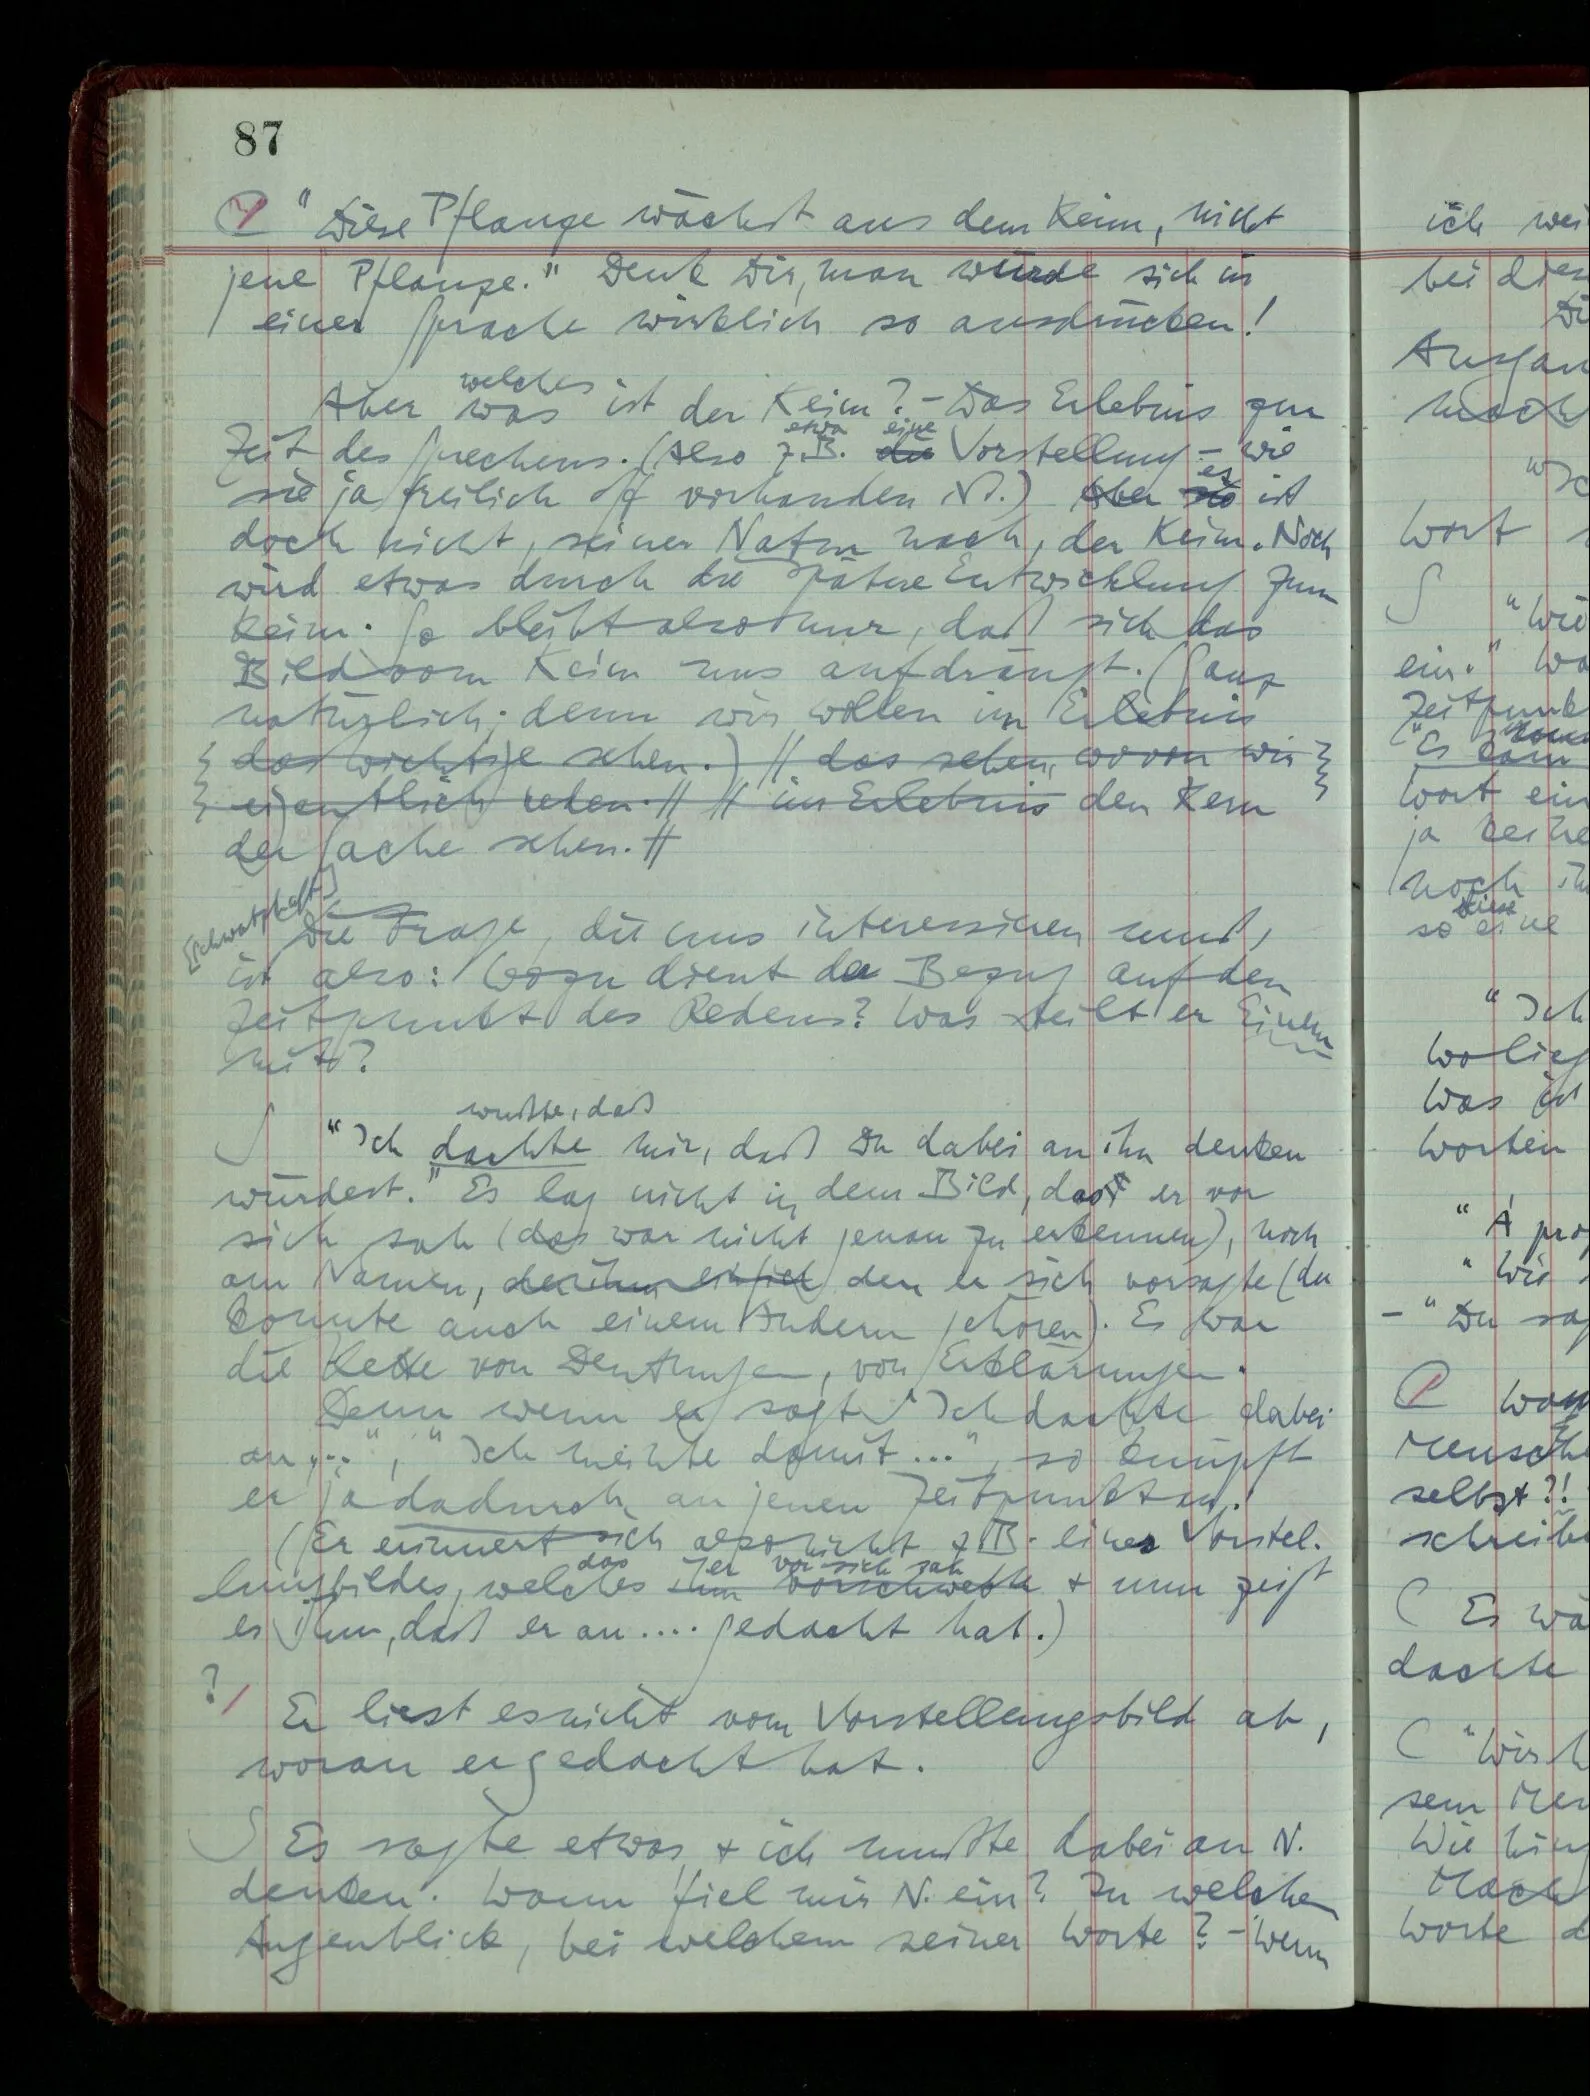 87
"Diese Pflanze wächst aus dem Keim, nicht
jene Pflanze." Denk Dir, man würde sich in
einer Sprache wirklich so ausdrücken!
welches
Aber was ist der Keim? – Das Erlebnis zur
etwa eine
Zeit des Sprechens. (Also z.B. die Vorstellung – wie
er
sie ja freilich oft vorhanden ist.) Aber sie ist
doch nicht, seiner Natur nach, der Keim. Noch
wird etwas durch die spätere Entwicklung zum
Keim. So bleibt also nur, daß sich das
Bild vom Keim uns aufdrängt. (Ganz
natürlich; denn wir wollen im Erlebnis
das wichtige sehen.) // das sehen, wovon wir
eigentlich reden. // // im Erlebnis den Kern
der Sache sehen. //
[schwatzhaft]
Die Frage, die uns interessieren muß,
ist also: Wozu dient der Bezug auf den
Zeitpunkt des Redens? Was teilt er Einem
mit?
wußte, daß
S "Ich dachte mir, daß Du dabei an ihn denken
würdest." Es lag nicht in dem Bild, das er vor
sich sah (das war nicht genau zu erkennen), noch
am Namen, der ihm einfiel den er sich vorsagte (der
konnte auch einem Andern gehören). Es war
die Kette von Deutungen, von Erklärungen.
Denn wenn er sagt "Ich dachte dabei
an ...", "Ich meinte damit ...", so knüpft
er ja dadurch an jenen Zeitpunkt an.
(Er erinnert sich also nicht z.B. eines Vorstel-
das er vor sich sah
lungsbildes, welches ihm vorschwebte + nun zeigt
es ihm, daß er an .... gedacht hat.)
? /
Er liest es nicht vom Vorstellungsbild ab,
woran er gedacht hat.
S Er sagte etwas + ich mußte dabei an N.
denken. Wann fiel mir N. ein? In welchem
Augenblick, bei welchem seiner Worte? – Wenn
ich
"Ich
Wort
ein."
ja keine
noch
Diese
so eine
"Ich
Was ist
Worten
"Wie
– "Du
selbst?!
Es wä
dachte
Wie
Worte